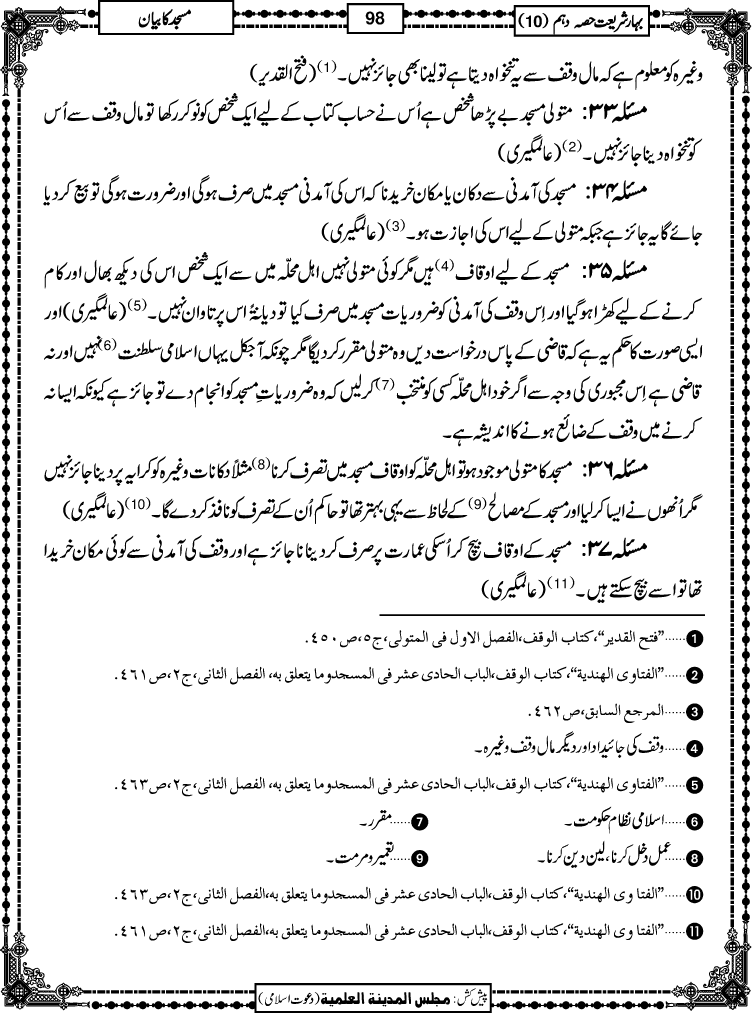 بہارِ شریعت حصہ دہم (10)
98
مسجد کا بیان
وغیرہ کو معلوم ہے کہ مال وقف سے یہ تنخواہ دیتا ہے تو لینا بھی جائز نہیں۔(1) (فتح القدیر)
مسئلہ ۳۳: متولی مسجد بے پڑھا شخص ہے اُس نے حساب کتاب کے لیے ایک شخص کو نوکر رکھا تو مال وقف سے اُس
کو تنخواہ دینا جائز نہیں۔(2) (عالمگیری)
مسئلہ ۳۴: مسجد کی آمدنی سے دکان یا مکان خریدنا کہ اس کی آمدنی مسجد میں صرف ہوگی اور ضرورت ہوگی تو بیع کر دیا
جائے گا یہ جائز ہے جبکہ متولی کے لیے اس کی اجازت ہو۔(3) (عالمگیری)
مسئلہ ۳۵: مسجد کے لیے اوقاف(4) ہیں مگر کوئی متولی نہیں اہل محلّہ میں سے ایک شخص اس کی دیکھ بھال اور کام
کرنے کے لیے کھڑا ہوگیا اور اِس وقف کی آمدنی کو ضروریات مسجد میں صرف کیا تو دیانۃً اس پر تاوان نہیں۔(5) (عالمگیری) اور
ایسی صورت کا حکم یہ ہے کہ قاضی کے پاس درخواست دیں وہ متولی مقرر کر دیگا مگر چونکہ آجکل یہاں اسلامی سلطنت(6) نہیں اور نہ
قاضی ہے اِس مجبوری کی وجہ سے اگر خود اہل محلّہ کسی کو منتخب(7) کرلیں کہ وہ ضروریاتِ مسجد کو انجام دے تو جائز ہے کیونکہ ایسا نہ
کرنے میں وقف کے ضائع ہونے کا اندیشہ ہے۔
مسئلہ ۳۶: مسجد کا متولی موجود ہو تو اہل محلّہ کو اوقاف مسجد میں تصرف کرنا(8) مثلاً دکانات وغیرہ کو کرایہ پر دینا جائز نہیں
مگر اُنھوں نے ایسا کرلیا اور مسجد کے مصالح(9) کے لحاظ سے یہی بہتر تھا تو حاکم اُن کے تصرف کو نافذ کر دے گا۔(10) (عالمگیری)
مسئلہ ۳۷: مسجد کے اوقاف بیچ کر اُسکی عمارت پر صرف کر دینا ناجائز ہے اور وقف کی آمدنی سے کوئی مکان خریدا
تھا تو اسے بیچ سکتے ہیں۔(11) (عالمگیری)
1 ......”فتح القدیر“، کتاب الوقف، الفصل الاول فی المتولی، ج۵، ص۴۵۰.
2 ......”الفتاوی الهندیة“، کتاب الوقف، الباب الحادی عشر فی المسجد وما یتعلق به، الفصل الثانی، ج۲، ص۴۶۱.
3 ......المرجع السابق، ص۴۶۲.
4 ......وقف کی جائیداد اور دیگر مال وقف وغیرہ۔
5 ......”الفتاوی الهندیة“، کتاب الوقف، الباب الحادی عشر فی المسجد وما یتعلق به، الفصل الثانی، ج۲، ص۴۶۳.
6 ......اسلامی نظام حکومت۔ 7 ......مقرر۔
8 ......عمل دخل کرنا، لین دین کرنا۔ 9 ......تعمیر و مرمت۔
10 ......”الفتاوی الهندیة“، کتاب الوقف، الباب الحادی عشر فی المسجد وما یتعلق به، الفصل الثانی، ج۲، ص۴۶۳.
11 ......”الفتاوی الهندیة“، کتاب الوقف، الباب الحادی عشر فی المسجد وما یتعلق به، الفصل الثانی، ج۲، ص۴۶۱.
پیش کش: مجلس المدینة العلمیة (دعوت اسلامی)